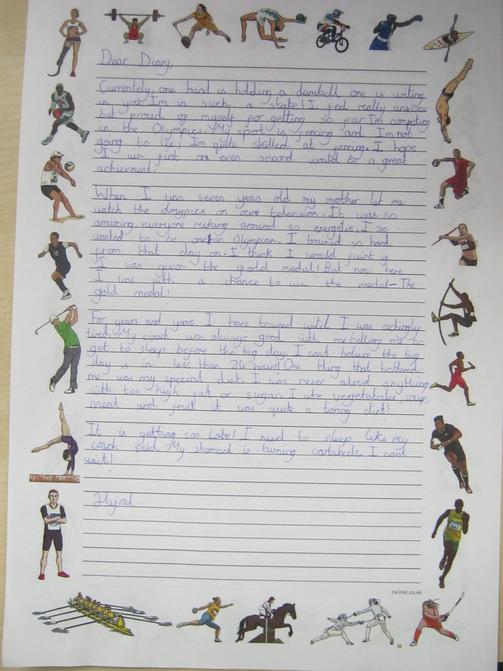 Dear Diary,
Currently, one hand is holding a dumbell one is writing
in you! I'm in such a state! I feel really anxious
but proud of myself for getting so far I'm competing
in the Olympics. My sport is fencing and I'm not
going to lie, I'm quite skilled at fencing. I hope
I win first or even second would be a great
achievment.
When I was seven years old my mother let me
watch the olmypics on our television. It was so
amazing, everyone rushing around so energetic. I so
wanted to be an Olympian. I trained so hard
from that day on. I think I would faint if
I was given the gold medal! But now here
I was with a chance to win the medal-The
gold medal!
For years and years I have trained until I was achingly
tired. My coach was always good with me telling me to
get to sleep before the big day. I cant believe the big
day is in less than 24 hours! One thing that bothered
me was my special diet. I was never alowd anything
with too high fat or sugar. I ate vegetables,
meat and fruit it was quite a boring diet!
It is getting so late! I need to sleep like my
coach said. My stomach is turning cartwheels. I cant
wait!
twinkl.co.uk